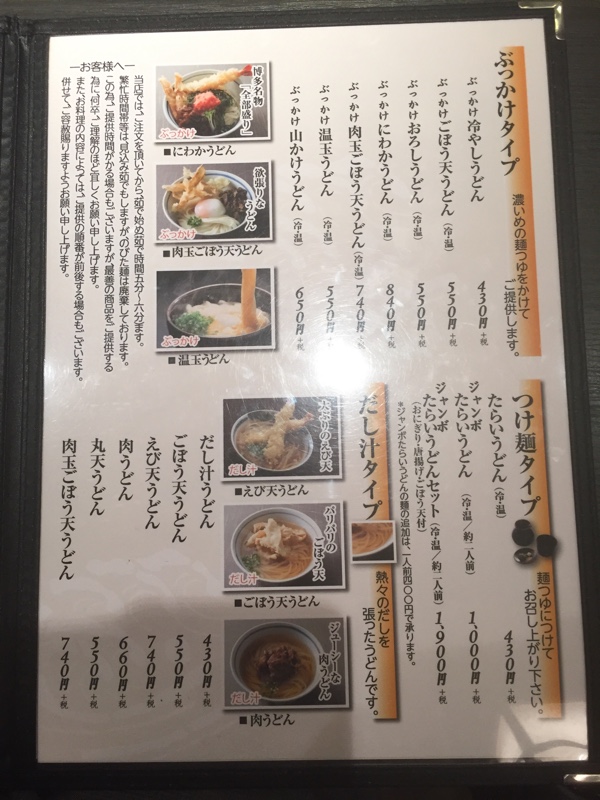 ぶっかけタイプ
濃いめの麺つゆをかけて
ご提供します。
ぶっかけ冷やしうどん 430円+税
ぶっかけごぼう天うどん(冷・温) 550円+税
ぶっかけおろしうどん(冷・温) 550円+税
ぶっかけにわかうどん(冷・温) 840円+税
ぶっかけ肉玉ごぼう天うどん(冷・温) 740円+税
ぶっかけ温玉うどん(冷・温) 550円+税
ぶっかけ山かけうどん(冷・温) 650円+税
博多名物
「全部盛り」
ぶっかけ
■にわかうどん
欲張りな
うどん
ぶっかけ
■肉玉ごぼう天うどん
ぶっかけ
■温玉うどん
―お客様へ―
当店では、ご注文を頂いてから茹で始め(茹で時間五分〜六分)ます。
繁忙時間帯等は、見込み茹でもしますが、のびた麺は廃棄しております。
この為、ご提供時間がかる場合もございますが、最善の商品をご提供する
為に、何卒、ご理解のほど宜しくお願い申し上げます。
また、お料理の内容によっては、ご提供の順番が前後する場合もございます。
併せて、ご容赦賜りますようお願い申し上げます。
つけ麺タイプ
麺つゆにつけて
お召し上がり下さい。
たらいうどん(冷・温) 430円+税
ジャンボ
たらいうどん(冷・温/約二人前) 1,000円+税
ジャンボ
たらいうどんセット(冷・温/約二人前) 1,900円+税
(おにぎり・唐揚げ・ごぼう天付)
*ジャンボたらいうどんの麺の追加は、一人前四〇〇円で承ります。
だし汁タイプ
熱々のだしを
張ったうどんです。
大ぶりのえび天
だし汁
■えび天うどん
パリパリの
ごぼう天
だし汁
■ごぼう天うどん
ジューシーな
肉うどん
だし汁
■肉うどん
だし汁うどん 430円+税
ごぼう天うどん 550円+税
えび天うどん 740円+税
肉うどん 660円+税
丸天うどん 550円+税
肉玉ごぼう天うどん 740円+税